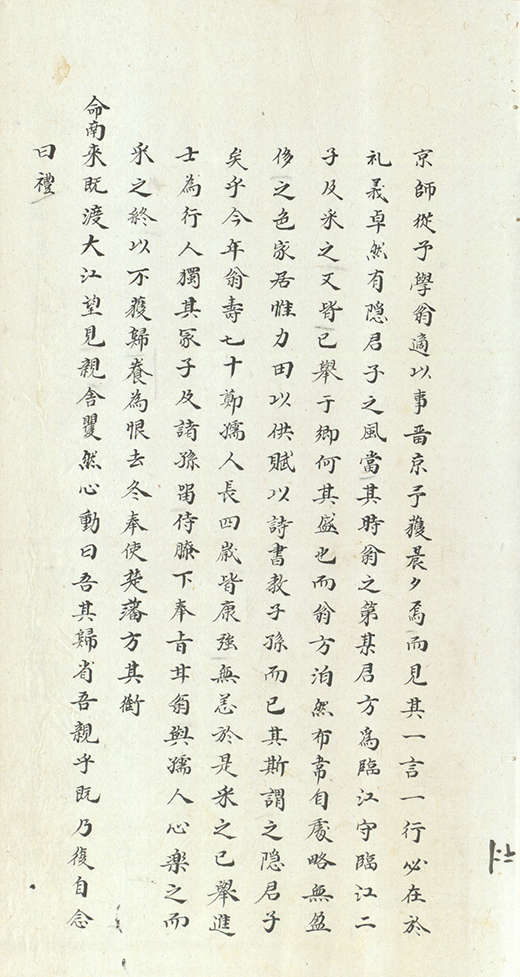 京師從予學翁適以事晋京予獲晨夕焉而見其一言一行必在於
礼義卓然有隱君子之風當其時翁之第某君方為臨江守臨江二
子及釆之又皆已舉于鄉何其盛也而翁方泊然布常自處略無盈
侈之色家居惟力田以供賦以詩書教子孫而已其斯謂之隱君子
矣乎今年翁壽七十鄭孺人長四歲皆康強無恙於是釆之已舉進
士為行人獨其冢子及諸孫留侍膝下奉旨甘翁與孺人心樂之而
釆之終以不獲歸養為恨去冬奉使楚藩方其銜
命南來既渡大江望見親舍瞿然心動曰吾其歸省吾親乎既乃復自念
曰禮